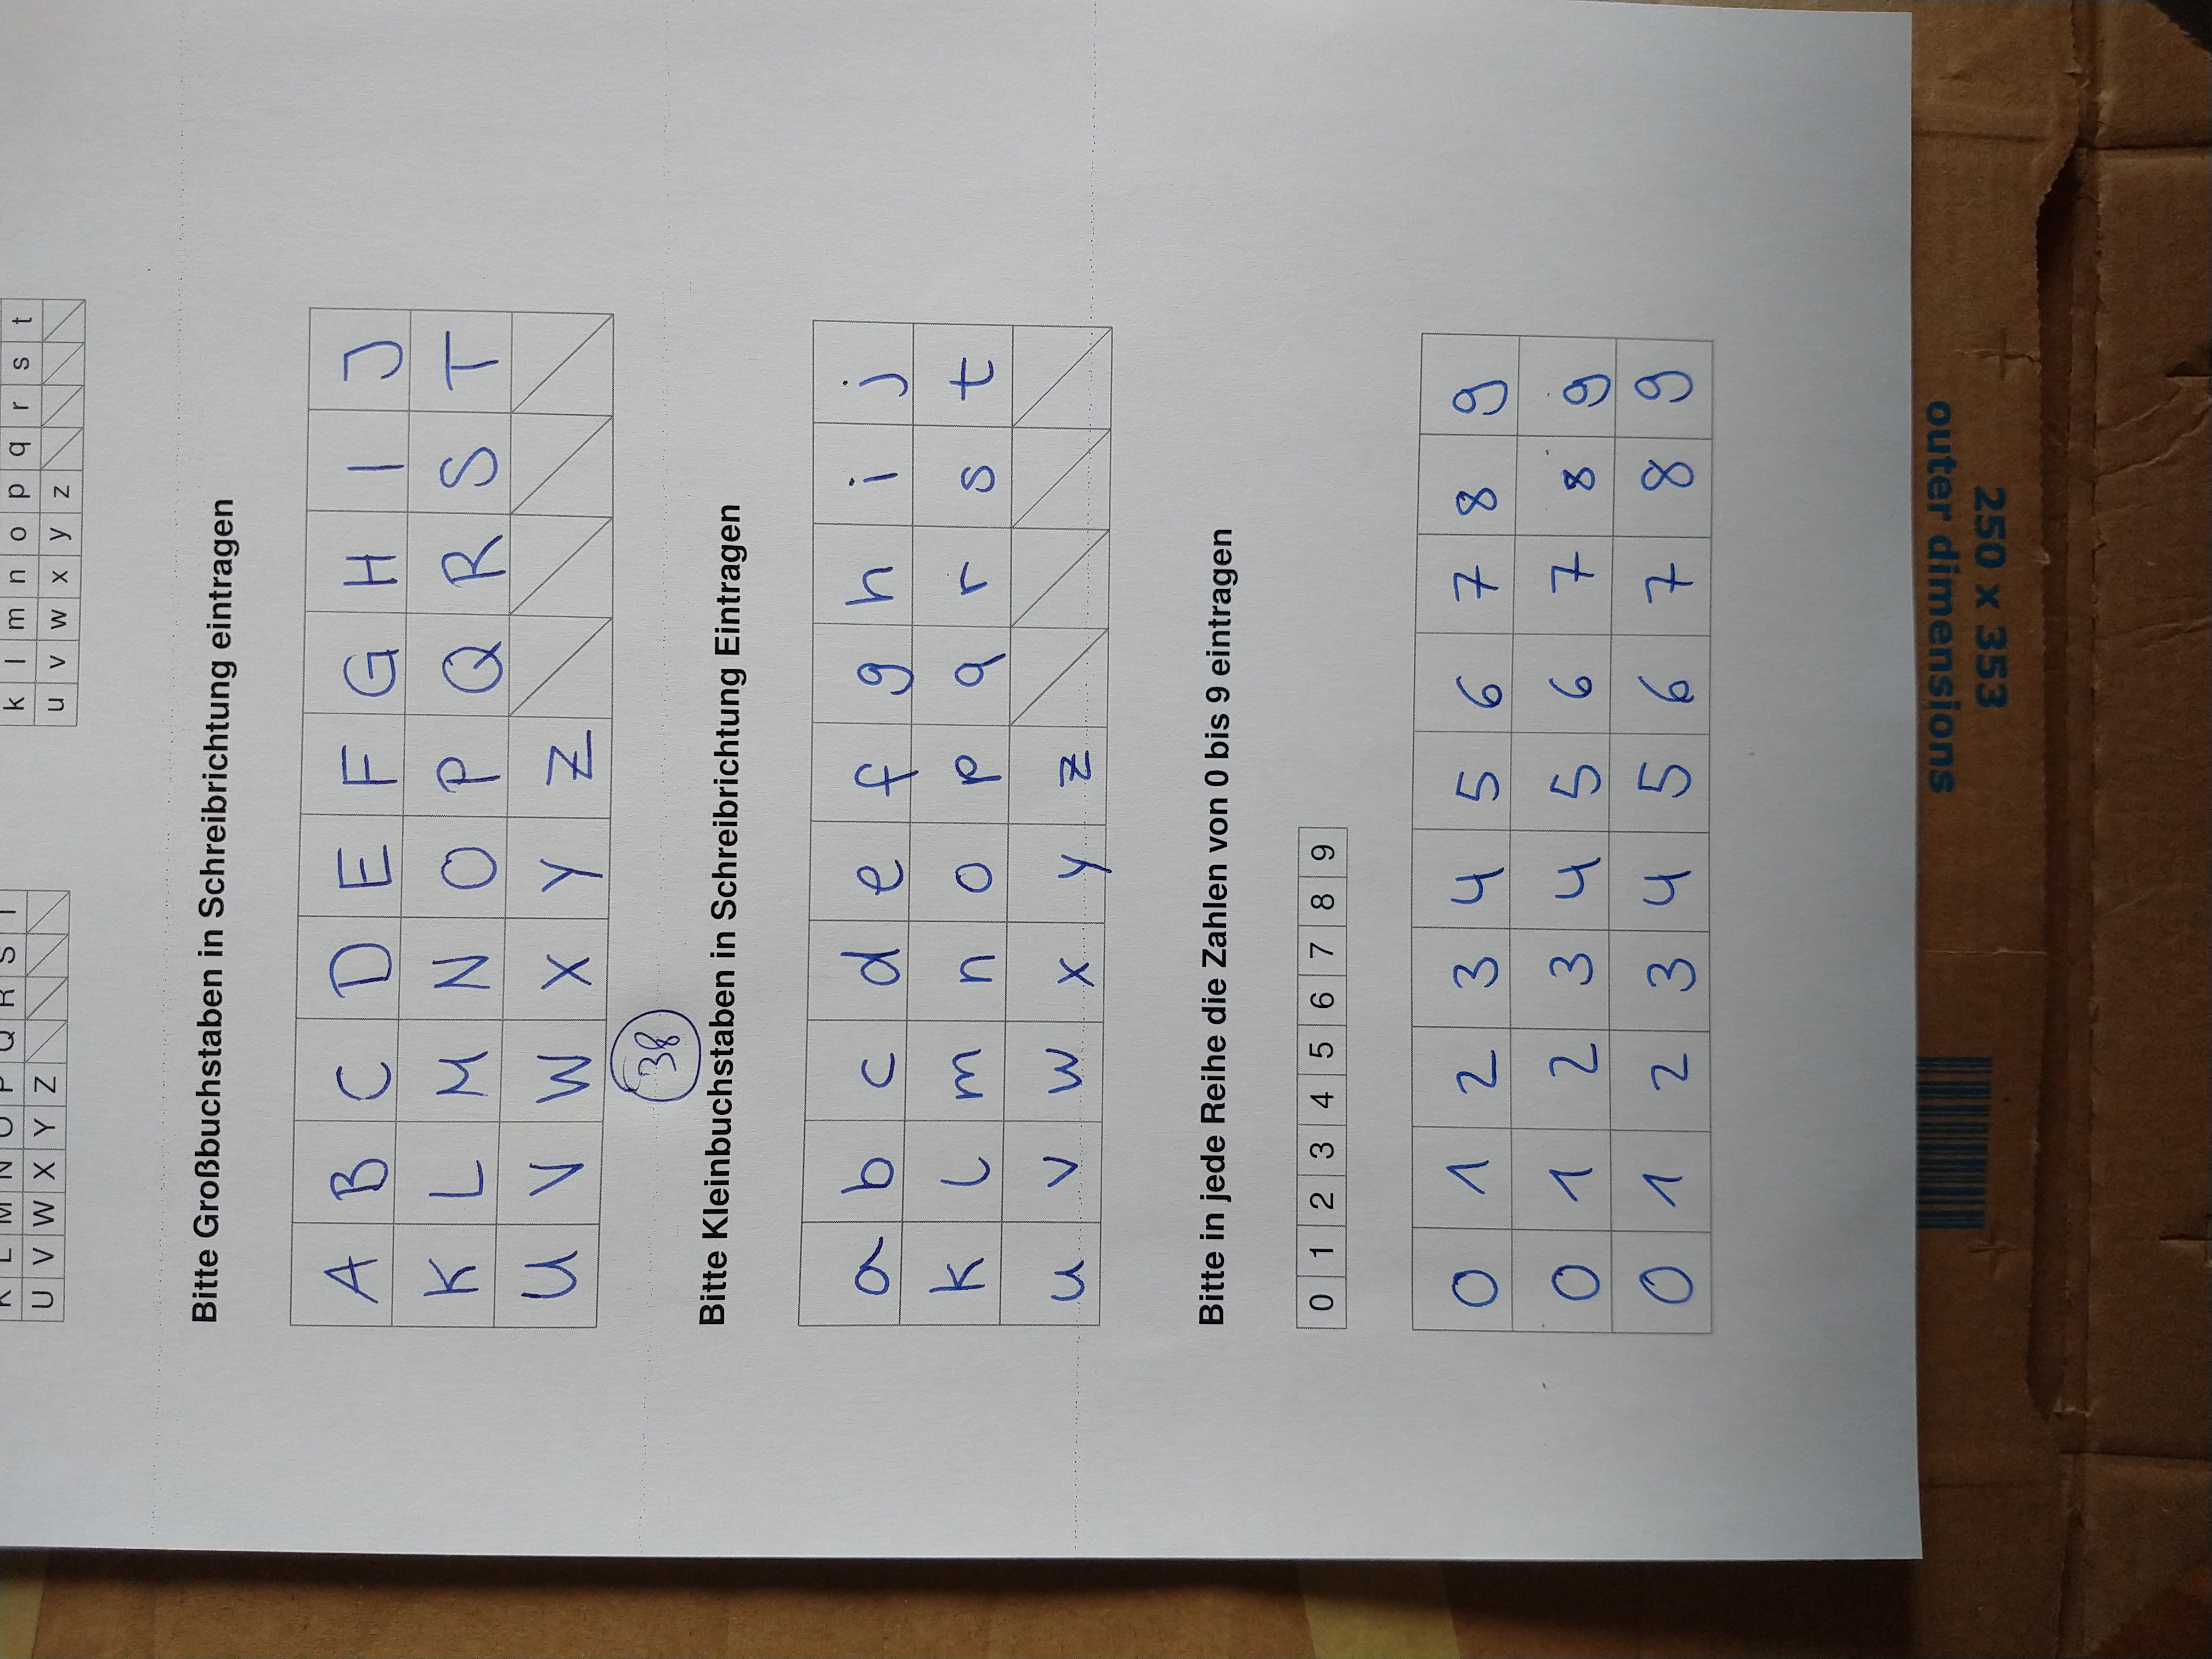 K L M N O P Q R S T
U V W X Y Z
k l m n o p q r s t
u v w x y z
Bitte Großbuchstaben in Schreibrichtung eintragen
A B C D E F G H I J
K L M N O P Q R S T
U V W X Y Z
38
Bitte Kleinbuchstaben in Schreibrichtung Eintragen
a b c d e f g h i j
k l m n o p q r s t
u v w x y z
Bitte in jede Reihe die Zahlen von 0 bis 9 eintragen
0 1 2 3 4 5 6 7 8 9
0 1 2 3 4 5 6 7 8 9
0 1 2 3 4 5 6 7 8 9
0 1 2 3 4 5 6 7 8 9
250 x 353
outer dimensions